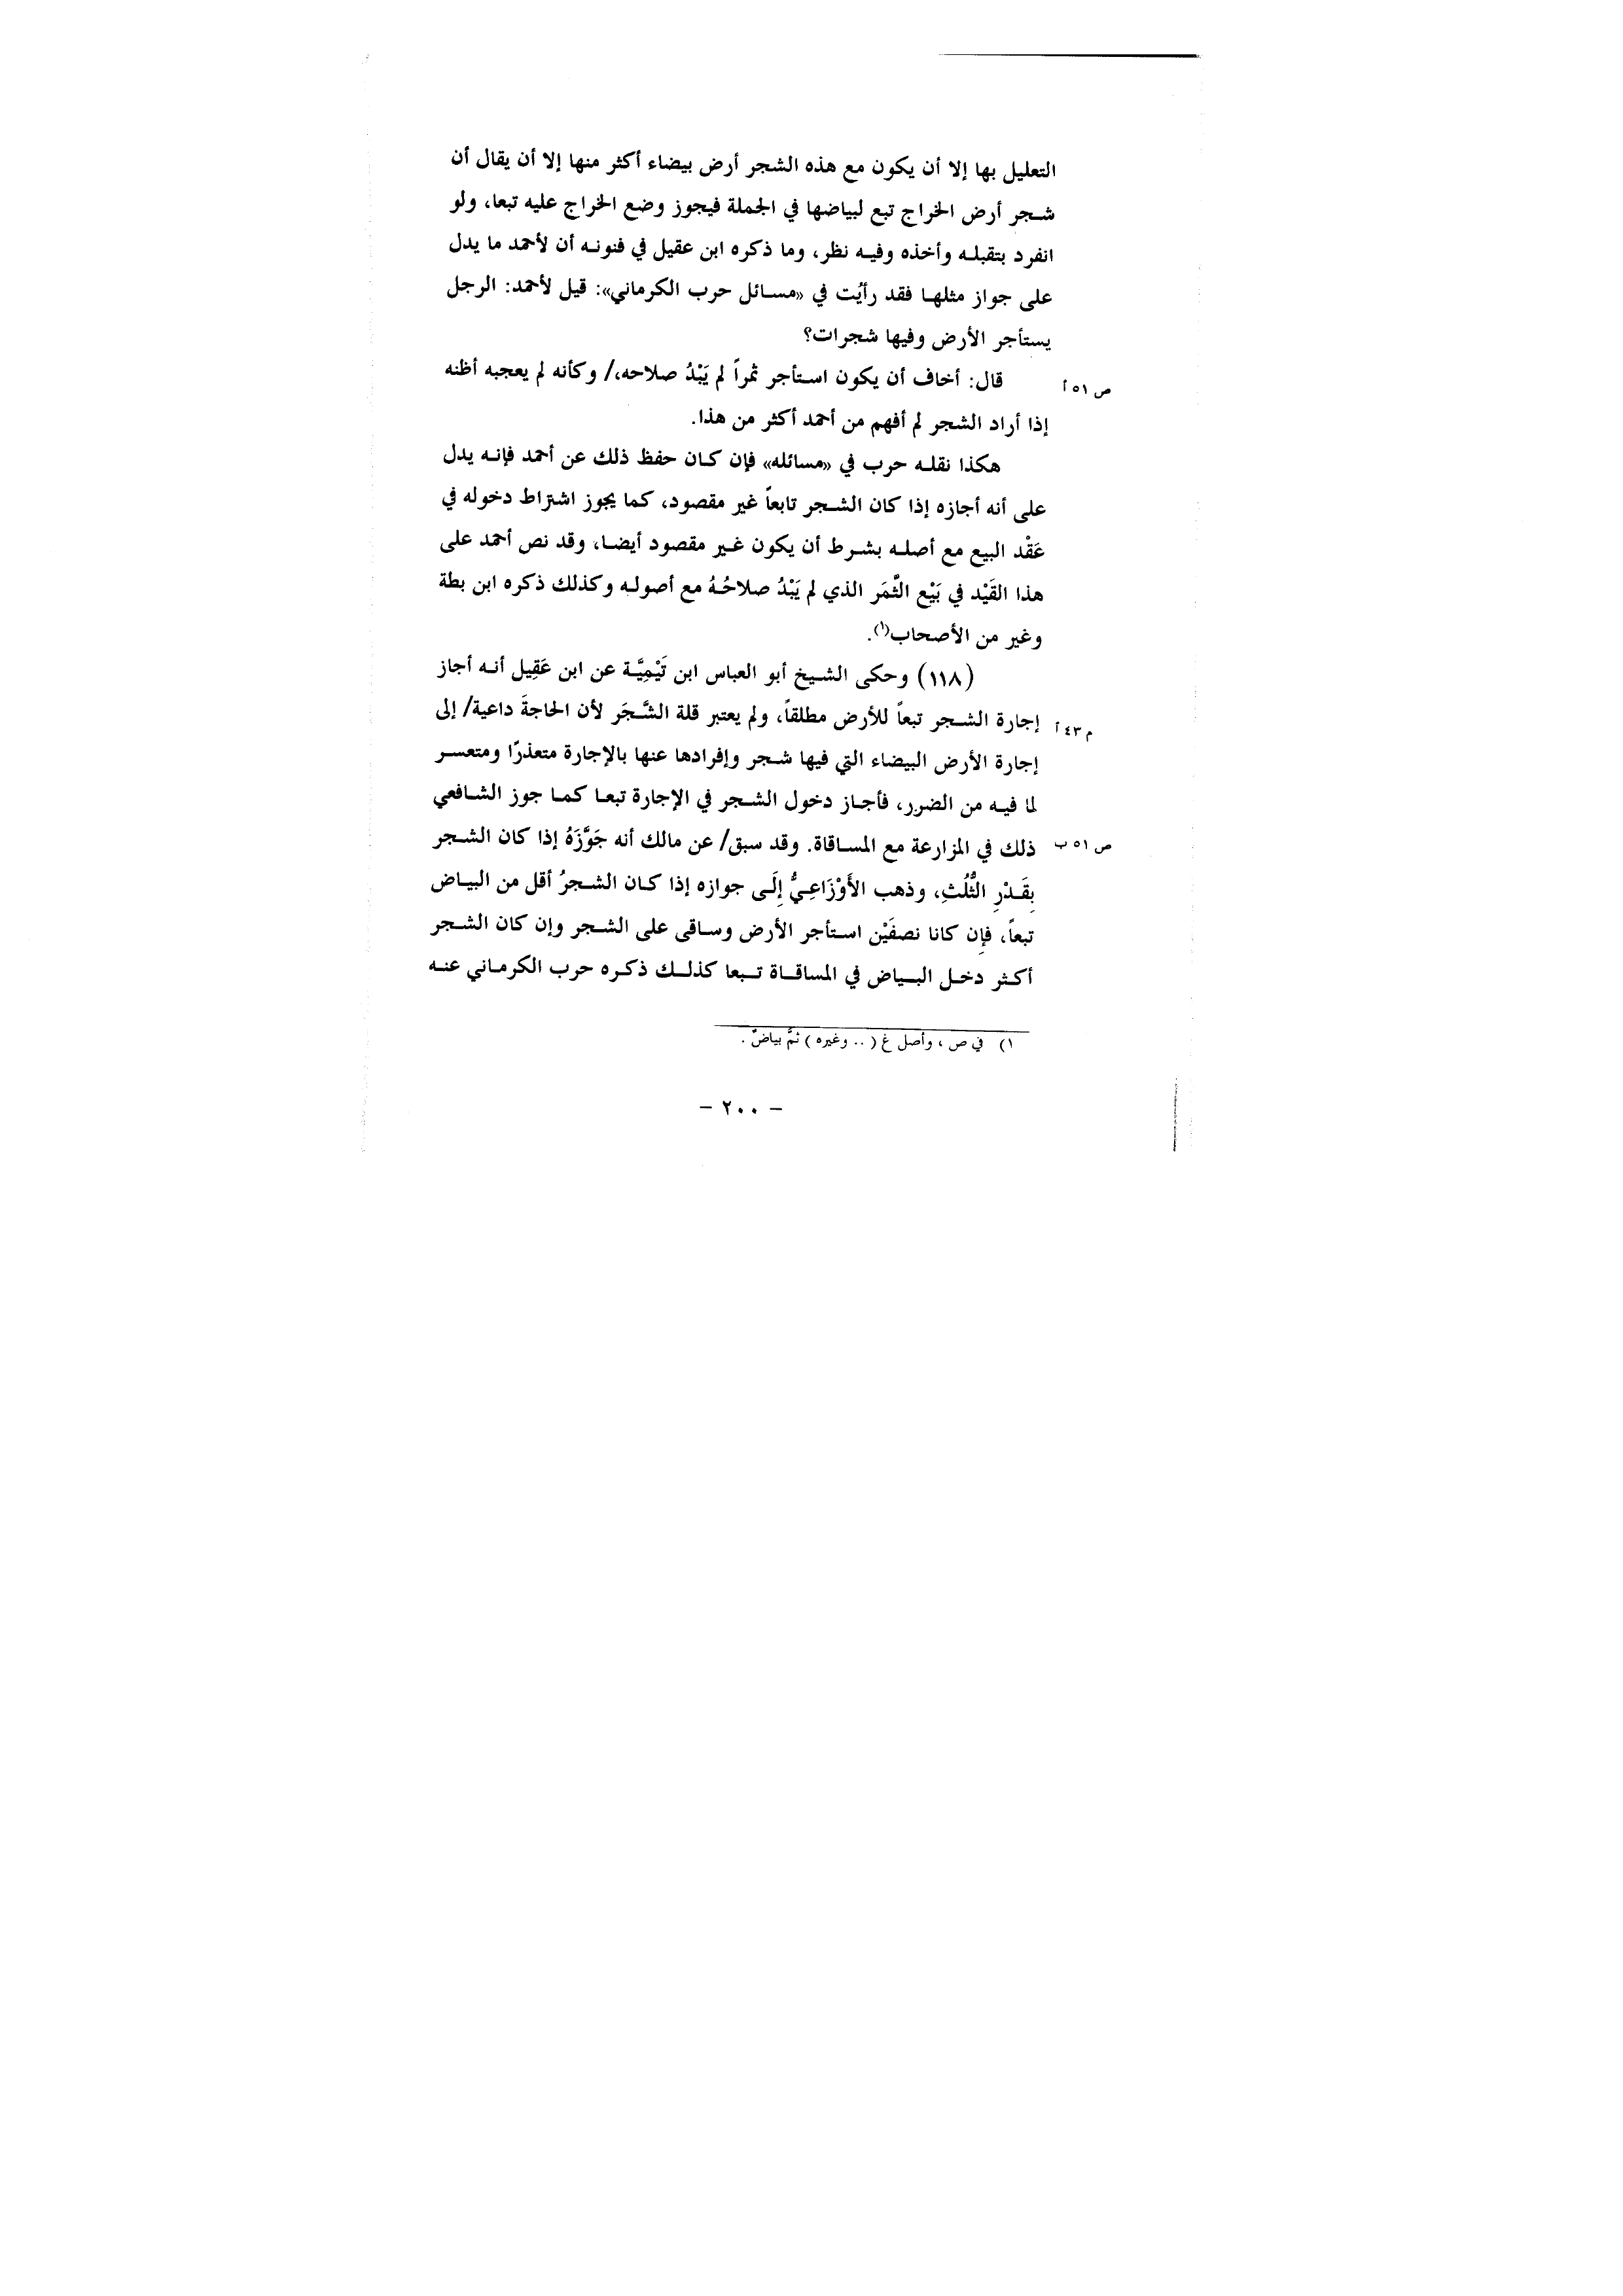 التعليل بها إلا أن يكون مع هذه الشجر أرض بيضاء أكثر منها إلا أن يقال أن
شجر أرض الخراج تبع لبياضها في الجملة فيجوز وضع الخراج عليه تبعا، ولو
انفرد بتقبله وأخذه وفيه نظر، وما ذكره ابن عقيل في فنونه أن لأحمد ما يدل
على جواز مثلها فقد رأيُت في «مسائل حرب الكرماني»: قيل لأحمد: الرجل
يستأجر الأرض وفيها شجرات؟
ص ٥١ أ قال: أخاف أن يكون استأجر ثمراً لم يَبْدُ صلاحه،/ وكأنه لم يعجبه أظنه
إذا أراد الشجر لم أفهم من أحمد أكثر من هذا.
هكذا نقله حرب في «مسائله» فإن كان حفظ ذلك عن أحمد فإنه يدل
على أنه أجازه إذا كان الشجر تابعاً غير مقصود، كما يجوز اشتراط دخوله في
عَقْد البيع مع أصله بشرط أن يكون غير مقصود أيضا، وقد نص أحمد على
هذا القَيْد في بَيْع الثَّمَر الذي لم يَبْدُ صلاحُهُ مع أصوله وكذلك ذكره ابن بطة
وغير من الأصحاب(١).
(١١٨) وحكى الشيخ أبو العباس ابن تَيْمِيَّة عن ابن عَقِيل أنه أجاز
م ٤٣ أ إجارة الشجر تبعاً للأرض مطلقاً، ولم يعتبر قلة الشَّجَر لأن الحاجةَ داعية/ إلى
إجارة الأرض البيضاء التي فيها شجر وإفرادها عنها بالإجارة متعذرًا ومتعسر
لما فيه من الضرر، فأجاز دخول الشجر في الإجارة تبعا كما جوز الشافعي
ص ٥١ ب ذلك في المزارعة مع المساقاة. وقد سبق/ عن مالك أنه جَوَّزَهُ إذا كان الشجر
بِقَدْرِ الثُّلُثِ، وذهب الأَوْزَاعِيُّ إِلَى جوازه إذا كان الشجرُ أقل من البياض
تبعاً، فإِن كانا نصفَيْن استأجر الأرض وساقى على الشجر وإن كان الشجر
أكثر دخل البياض في المساقاة تبعا كذلك ذكره حرب الكرماني عنه
١) في ص ، وأصل غ ( .. وغيره ) ثمَّ بياضٌ .
- ٢٠٠ -